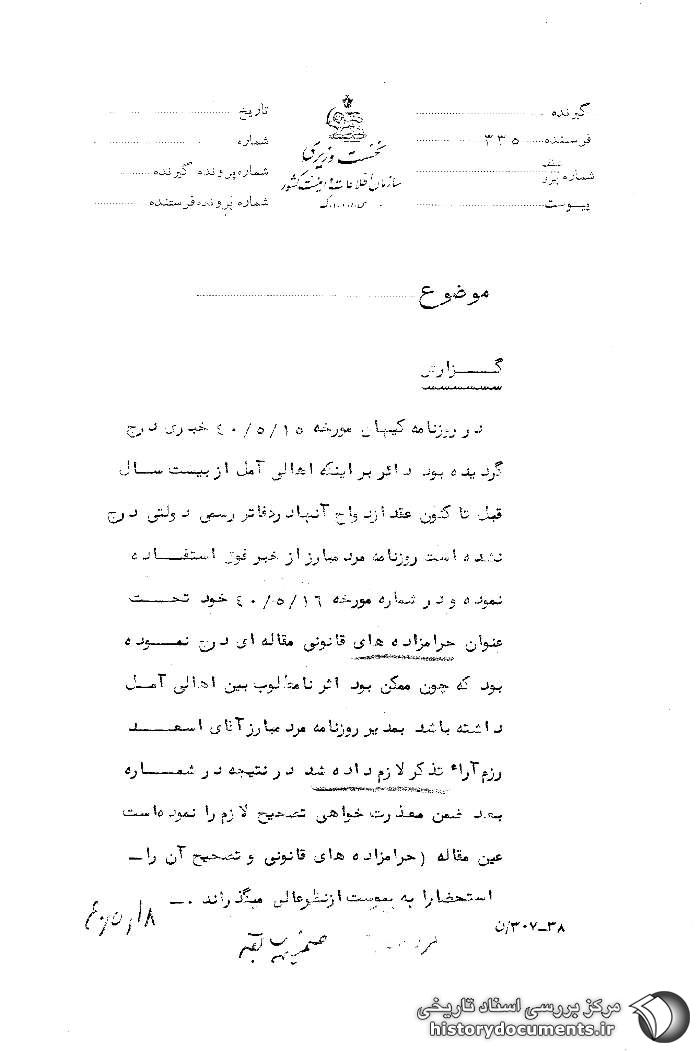 گیرنده
فرستنده ۳۳۵
شماره
پیوست
نخست وزیری
سازمان اطلاعات و امنیت کشور
س.ا.و.ا.ک
تاریخ
شماره
شماره پرونده گیرنده
شماره پرونده فرستنده
موضوع
گـــزارش
در روزنامه کیهان مورخه ۴۰/۵/۱۵ خبری درج
گردیده بود دائر بر اینکه اهالی آمل از بیست سال
قبل تا کنون عقد ازدواج آنها در دفاتر رسمی دولتی درج
نشده است روزنامه مرد مبارز از خبر فوق استفـــاده
نموده و در شماره مورخه ۴۰/۵/۱۶ خود تحـــت
عنوان حرامزاده های قانونی مقاله ای درج نمـــوده
بود که چون ممکن بود اثر نامطلوب بین اهالی آمـل
داشته باشد بمدیر روزنامه مرد مبارز آقای اسعـــد
رزم آراء تذکر لازم داده شد در نتیجه در شمـــاره
بعد ضمن معذرت خواهی تصحیح لازم را نموده‌است
عین مقاله (حرامزاده های قانونی و تصحیح آن راـ
استحضارا به پیوست ازنظرعالی میگذراند .ـ
۳۸ـ۳۰۷/ن
۱۸/۵/۴۰
مرکز بررسی اسناد تاریخی
historydocuments.ir